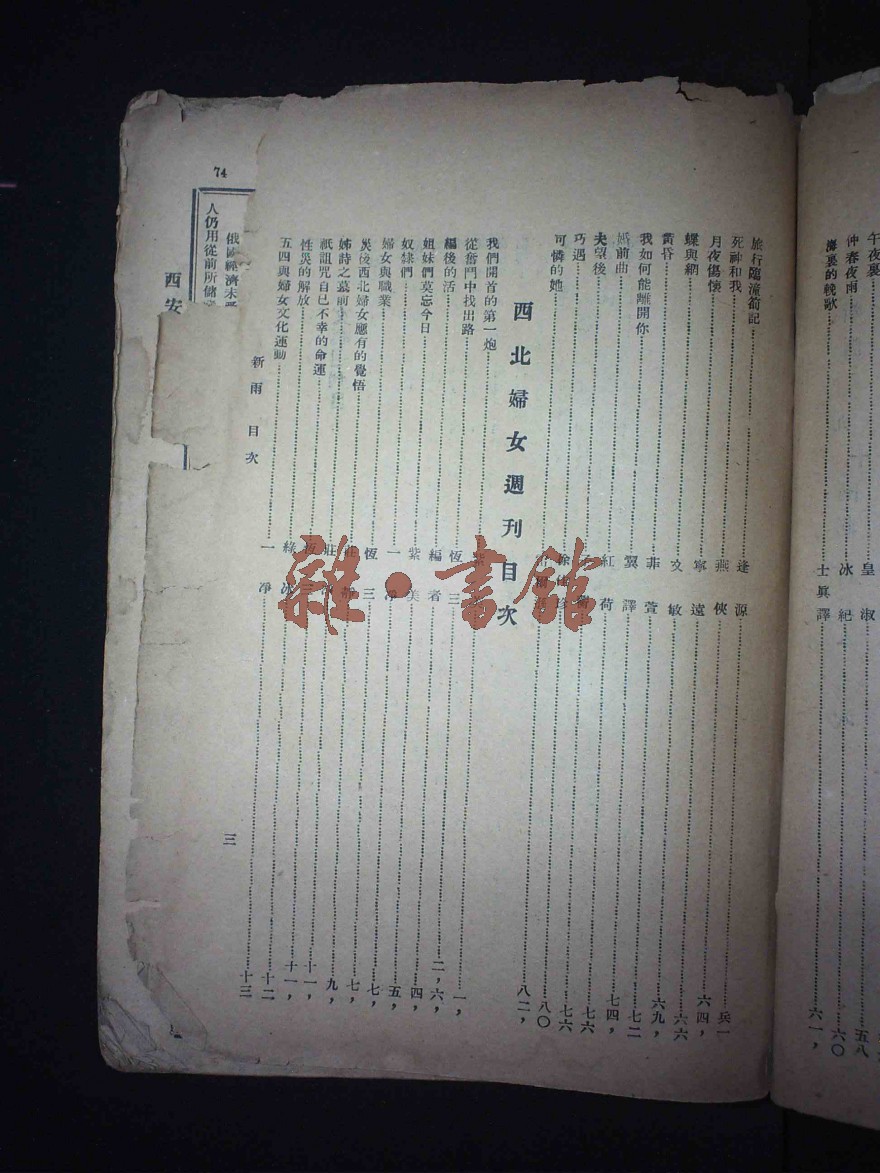 午夜裏 皇淑 五八
仲春夜雨 冰紀 六〇
海裏的輓歌 士眞譯 六一，
旅行臨潼筍記 逢源 兵一
死神和我 燕俠 六四，
月夜傷懷 寧遠 六六
蝶與網 文敏 六九，
黃昏 菲萱 七二
我如何能離開你 翼譯 七四，
婚前曲 紅荷 七六
夫望後 七六
巧遇 徐 珍 八〇
可憐的她 八二，
西北婦女週刊目次
我們開首的第一炮 紫 一，
從奮鬥中找出路 恆三 二，六，
編後的活 編者 四，
姐妹們莫忘今日 紫美 五，
奴隸們 一淨 七，
婦女與職業 恆三 七，
災後西北婦女應有的覺悟 莊靜 九，
姊詩之墓前 莊 十一，
祇詛咒自已不幸的命運 恆三 十一，
性災的解放 綠冰 十二
五四與婦女文化運動 一淨 十三
新雨 目次
三
俄國經濟未
人仍用從前所儲
74
西安
雜·書館